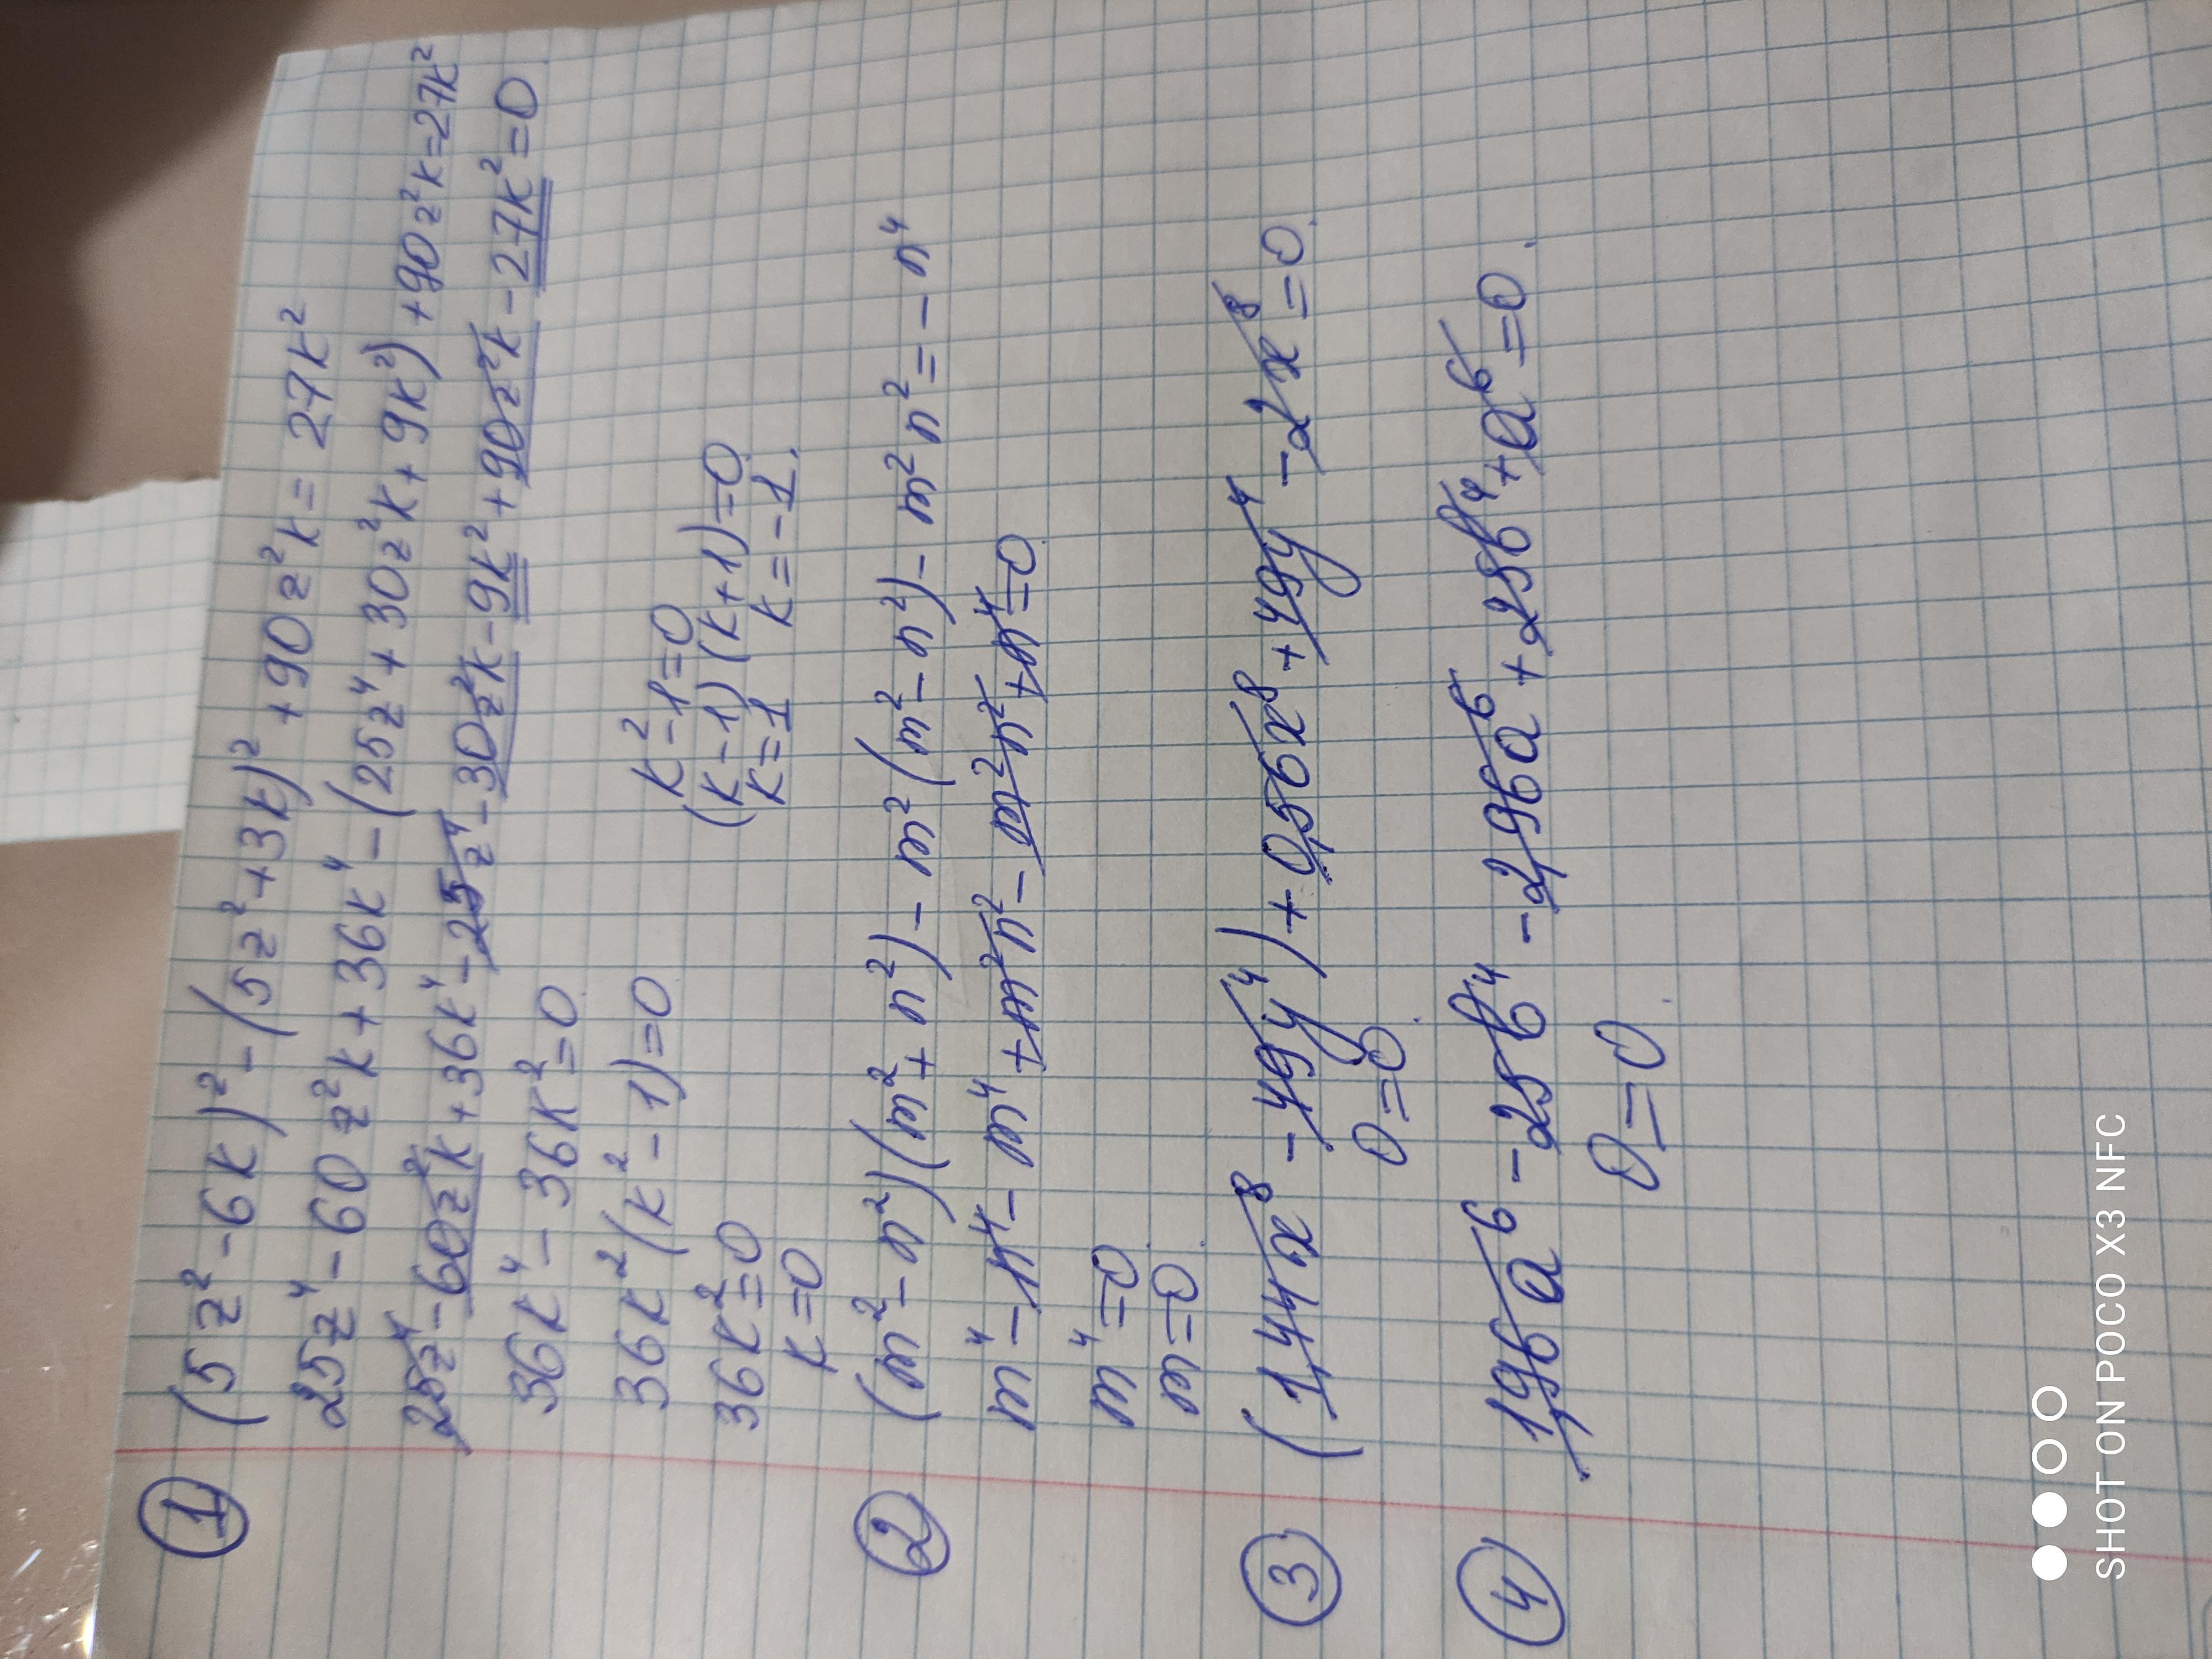 ① (5z²-6k)²-(5z²+3k)²+90z²k=27k²
25z⁴-60z²k+36k⁴-(25z⁴+30z²k+9k²)+90z²k=27k²
25z⁴-60z²k+36k⁴-25z⁴-30z²k-9k²+90z²k-27k²=0
36k⁴-36k²=0
36k²(k²-1)=0
36k²=0 k²-1=0
k=0 (k-1)(k+1)=0
k=1 k=-1.
② (m²-n²)(m²+n²)-m²(m²-n²)-m²n²=-n⁴
m⁴-n⁴-m⁴+m²n²-m²n²+n⁴=0
m⁴=0
m=0.
③ (1,44x⁸-49y⁴)+0,56x⁸+49y⁴-2x⁸=0.
0=0.
④ 1,96a⁶-25b⁴-2,96a⁶+25b⁴+a⁶=0.
0=0.
SHOT ON POCO X3 NFC